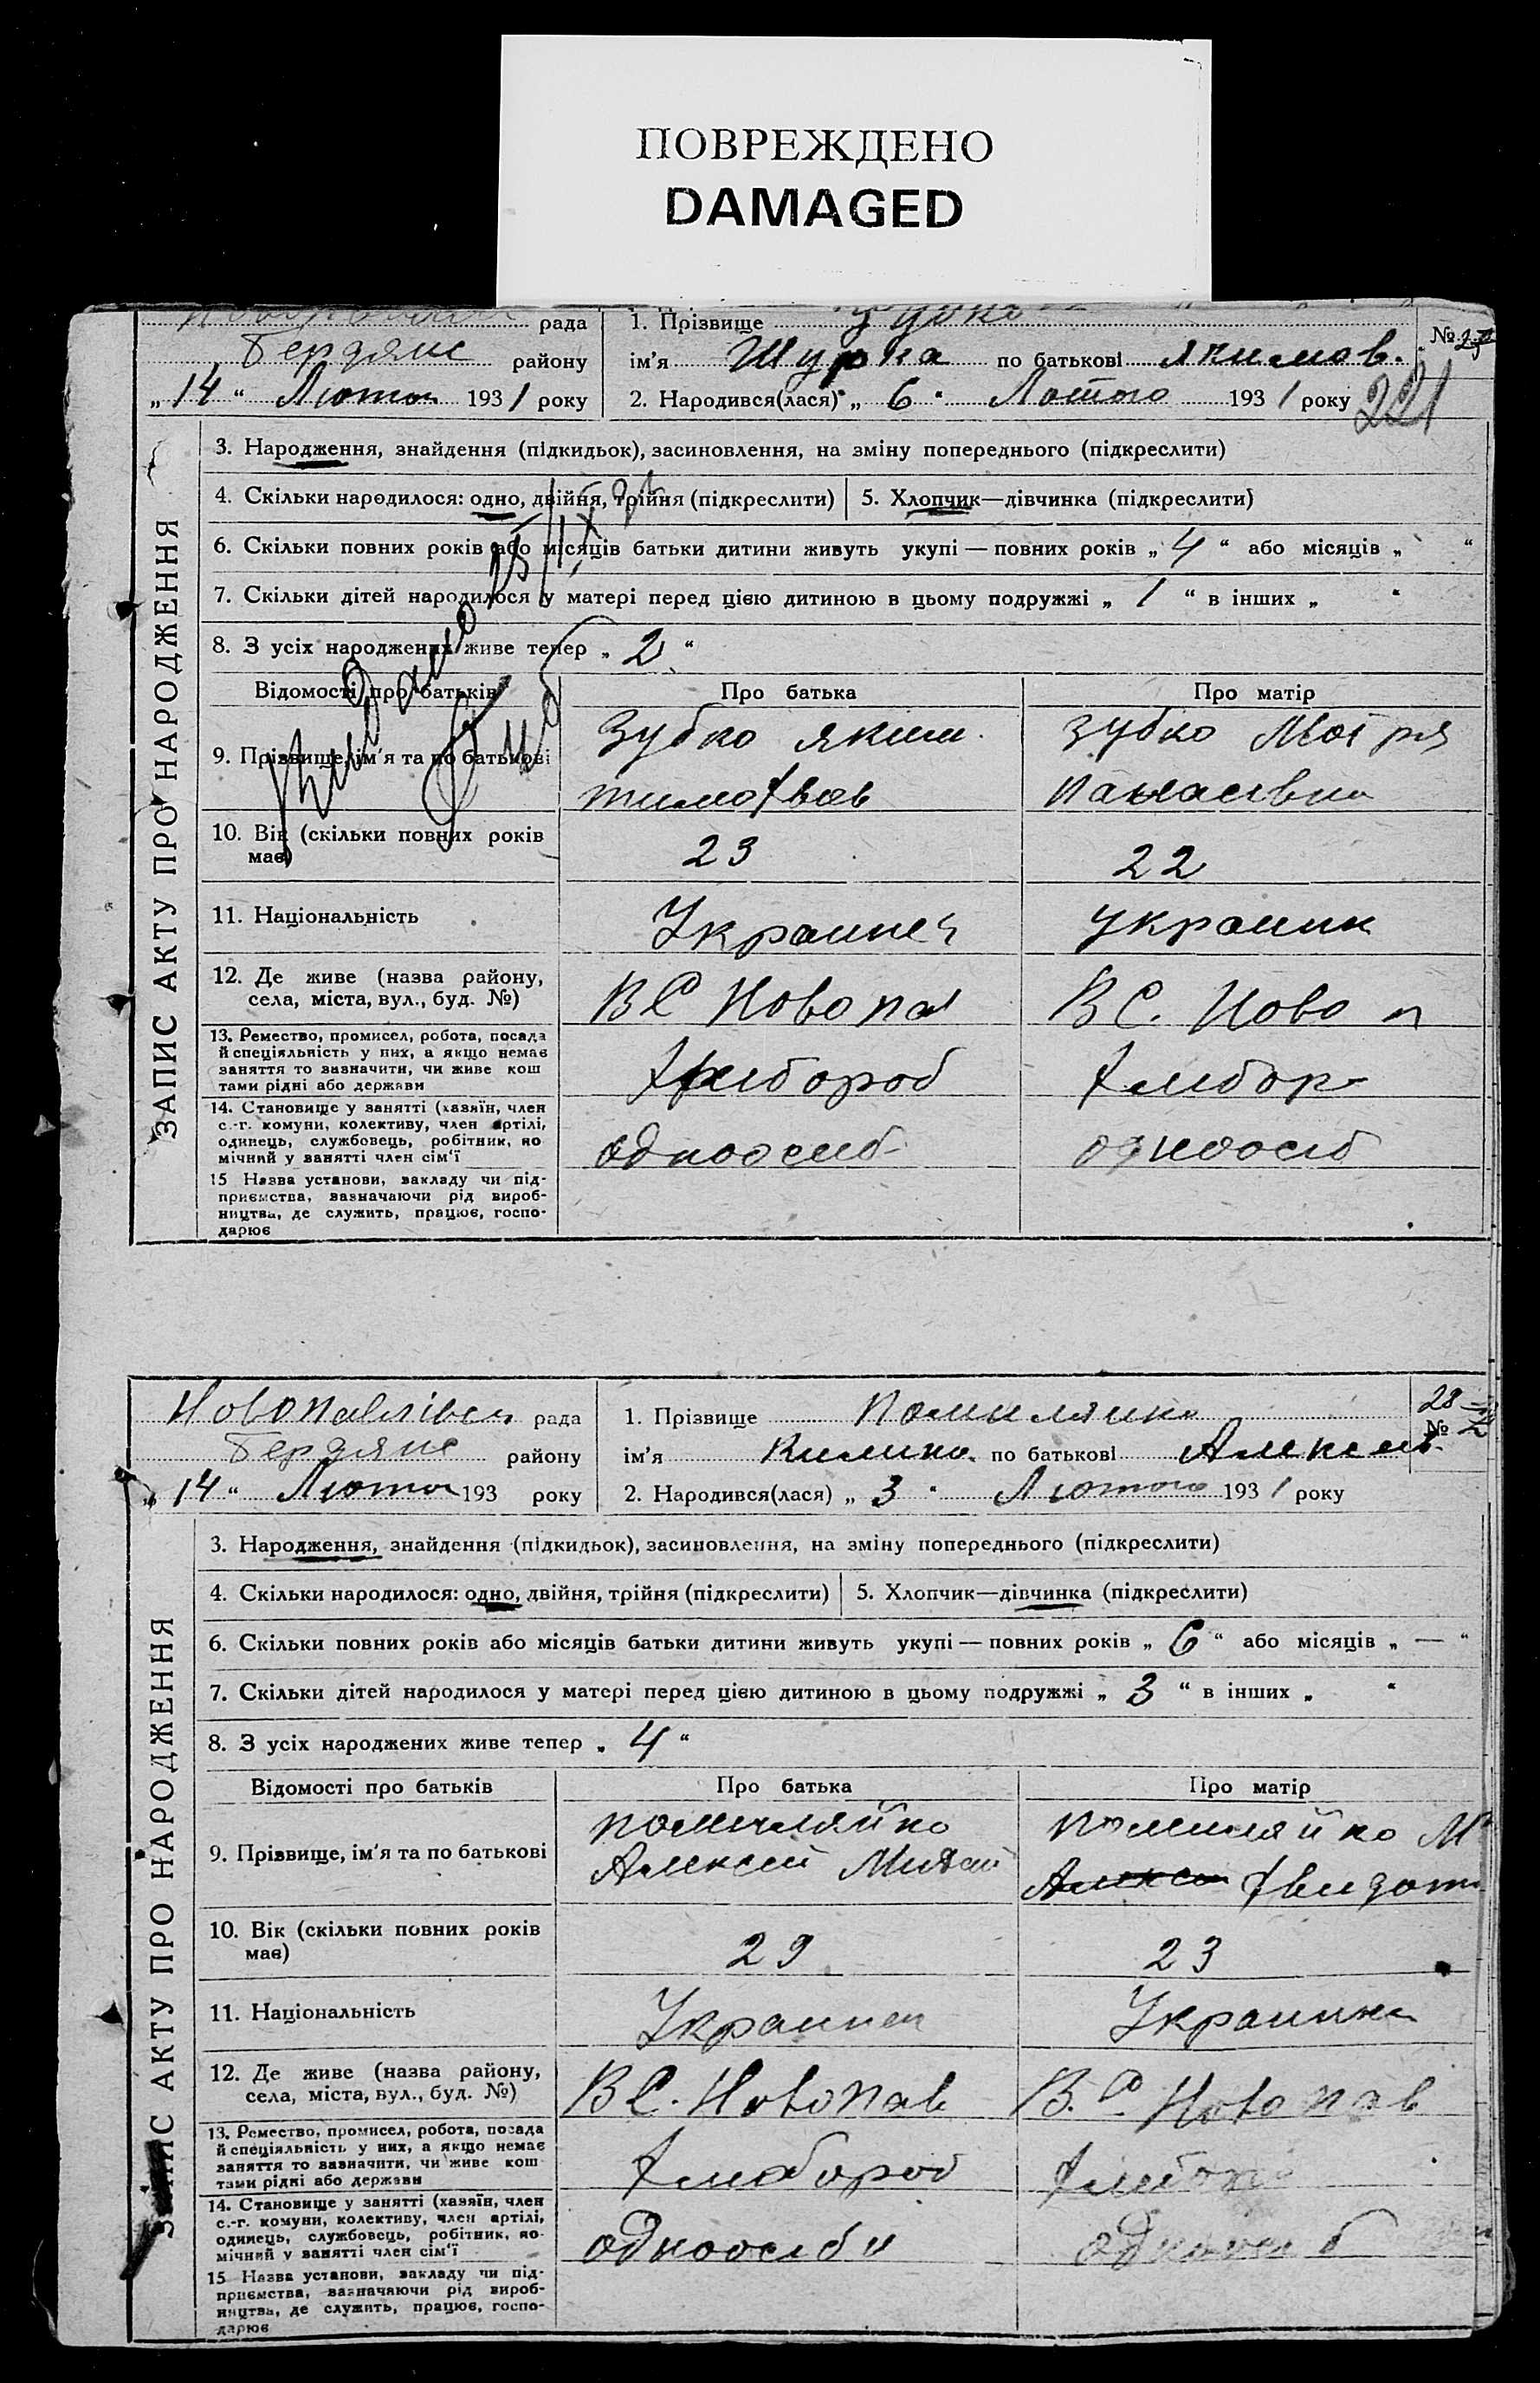 ПОВРЕЖДЕНО
DAMAGED
рада
Бердянс району
„14“ Лютого 1931 року
1. Прізвище Зубко
ім’я Шурка по батькові Якимов.
2. Народився(лася) „6“ Лютого 1931 року
№
221
ЗАПИС АКТУ ПРО НАРОДЖЕННЯ
3. Народження, знайдення (підкидьок), засиновлення, на зміну попереднього (підкреслити)
4. Скільки народилося: одно, двійня, трійня (підкреслити) 5. Хлопчик—дівчинка (підкреслити)
6. Скільки повних років або місяців батьки дитини живуть укупі — повних років „4“ або місяців „ “
7. Скільки дітей народилося у матері перед цією дитиною в цьому подружжі „1“ в інших „ “
8. З усіх народжених живе тепер „2“
Відомості про батьків Про батька Про матір
9. Прізвище, ім’я та по батькові
Зубко Яким.
зубко Мотря
Панасівна
10. Вік (скільки повних років має)
23
22
11. Національність
Украинец
украинк
12. Де живе (назва району, села, міста, вул., буд. №)
ВС Новопав
ВС. Ново п
13. Ремество, промисел, робота, посада
й спеціяльність у них, а якщо немає
заняття то зазначити, чи живе кош
тами рідні або держави
Хлібороб
Хлібор
14. Становище у занятті (хазяїн, член
с.-г. комуни, колективу, член артілі,
одинець, службовець, робітник, по
мічний у занятті член сім’ї
одноосиб
одноосіб
15 Назва установи, закладу чи під-
приємства, зазначаючи рід вироб-
ництва, де служить, працює, госпо-
дарює
Новопавлівськ рада
Бердянс району
„14“ Лютого 193 року
1. Прізвище Помиляйко
ім’я по батькові Алексеів.
2. Народився(лася) „3“ Лютого 1931 року
28
№
ЗАПИС АКТУ ПРО НАРОДЖЕННЯ
3. Народження, знайдення (підкидьок), засиновлення, на зміну попереднього (підкреслити)
4. Скільки народилося: одно, двійня, трійня (підкреслити) 5. Хлопчик—дівчинка (підкреслити)
6. Скільки повних років або місяців батьки дитини живуть укупі — повних років „6“ або місяців „—“
7. Скільки дітей народилося у матері перед цією дитиною в цьому подружжі „3“ в інших „ “
8. З усіх народжених живе тепер „4“
Відомості про батьків Про батька Про матір
9. Прізвище, ім’я та по батькові
помиляйко
Алексей
помиляйко М
10. Вік (скільки повних років має)
29
23
11. Національність
Украинец
Украинка
12. Де живе (назва району, села, міста, вул., буд. №)
ВС. Новопав
В.С. Новопав
13. Ремество, промисел, робота, посада
й спеціяльність у них, а якщо немає
заняття то зазначити, чи живе кош
тами рідні або держави
Хлібороб
Хлібор
14. Становище у занятті (хазяїн, член
с.-г. комуни, колективу, член артілі,
одинець, службовець, робітник, по
мічний у занятті член сім’ї
одноосіби
одноосиб
15 Назва установи, закладу чи під-
приємства, зазначаючи рід вироб-
ництва, де служить, працює, госпо-
дарює